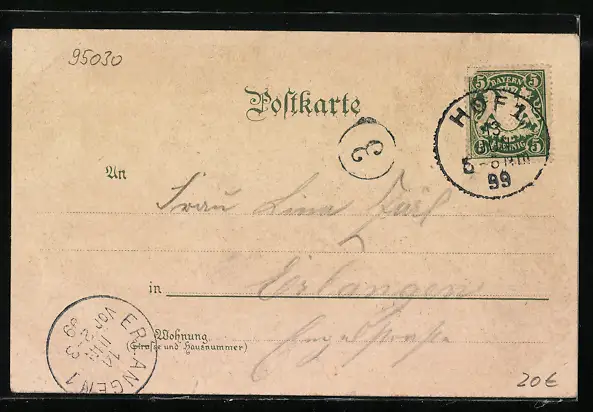 95030
Postkarte
5 BAYERN 5
5 PFENNIG 5
HOF 1
99
3
An
Frau Lina
in Erlangen
Wohnung
(Straße und Hausnummer)
ERLANGEN 1
VOR.
2-3
99
20€